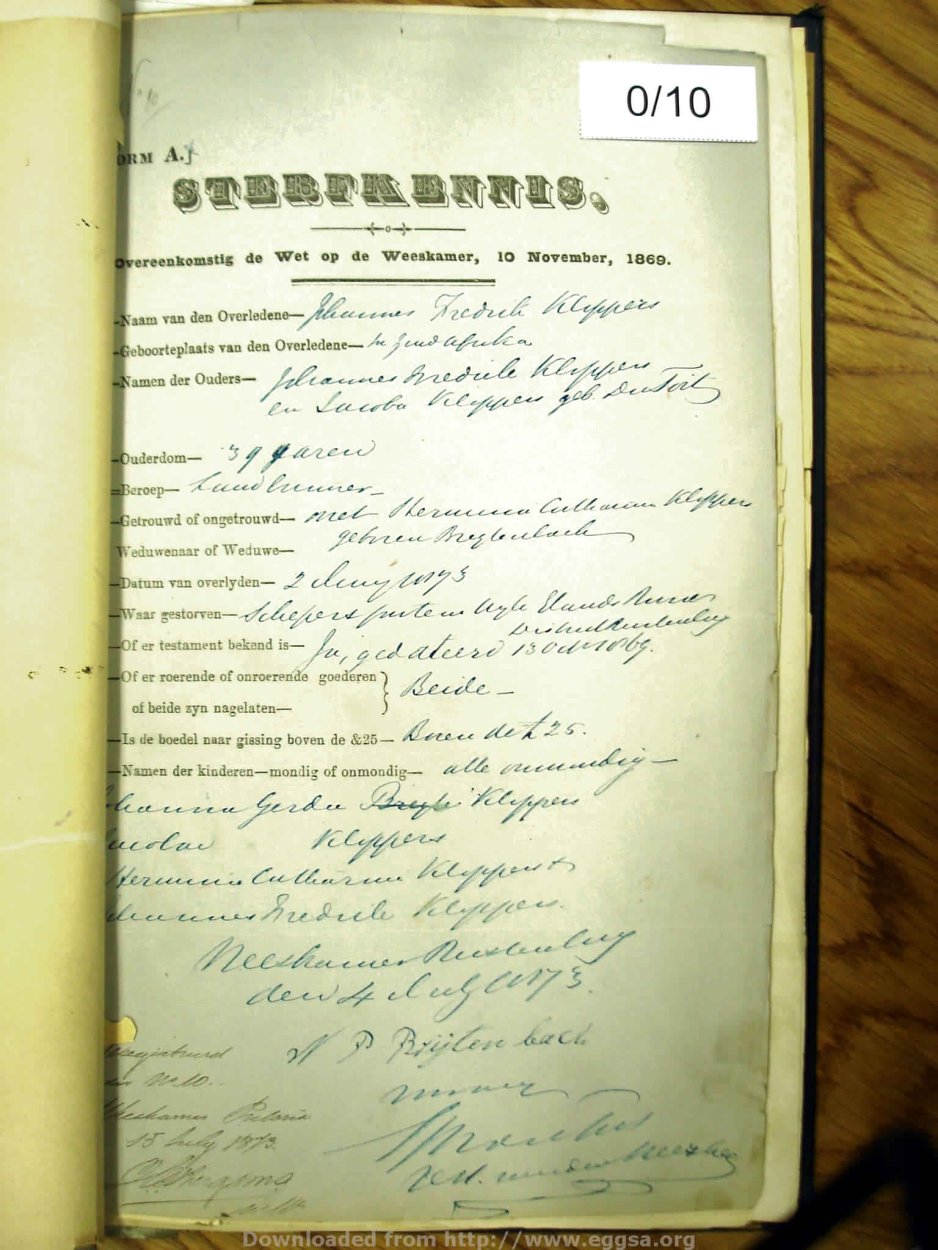 0/10
ORM A.]
STERFKENNIS.
Overeenkomstig de Wet op de Weeskamer, 10 November, 1869.
—Naam van den Overledene— Johannes Fredrik Kleppers
—Geboorteplaats van den Overledene— In Zuid Afrika
—Namen der Ouders— Johannes Fredrik Kleppers
en Jacoba Kleppers geb. Du Toit
—Ouderdom— 39 Jaren
—Beroep— Landbouwer—
—Getrouwd of ongetrouwd— met Hermina Catharina Kleppers
Weduwenaar of Weduwe— geboren Breytenbach
—Datum van overlyden— 2 1873
—Waar gestorven— Elands River
District Rustenburg
—Of er testament bekend is— Ja, gedateerd 13 1869.
—Of er roerende of onroerende goederen }
of beide zyn nagelaten— Beide—
—Is de boedel naar gissing boven de &25— Boven de £25.
—Namen der kinderen—mondig of onmondig— alle onmondig—
Gerda Kleppers
Kleppers
Hermina Catharina Kleppers
Johannes Fredrik Kleppers.
Weeskamer Rustenburg
den 4 July 1873.
P Brijtenbach
Weeskamer Pretoria
15 July 1873.
Downloaded from http://www.eggsa.org